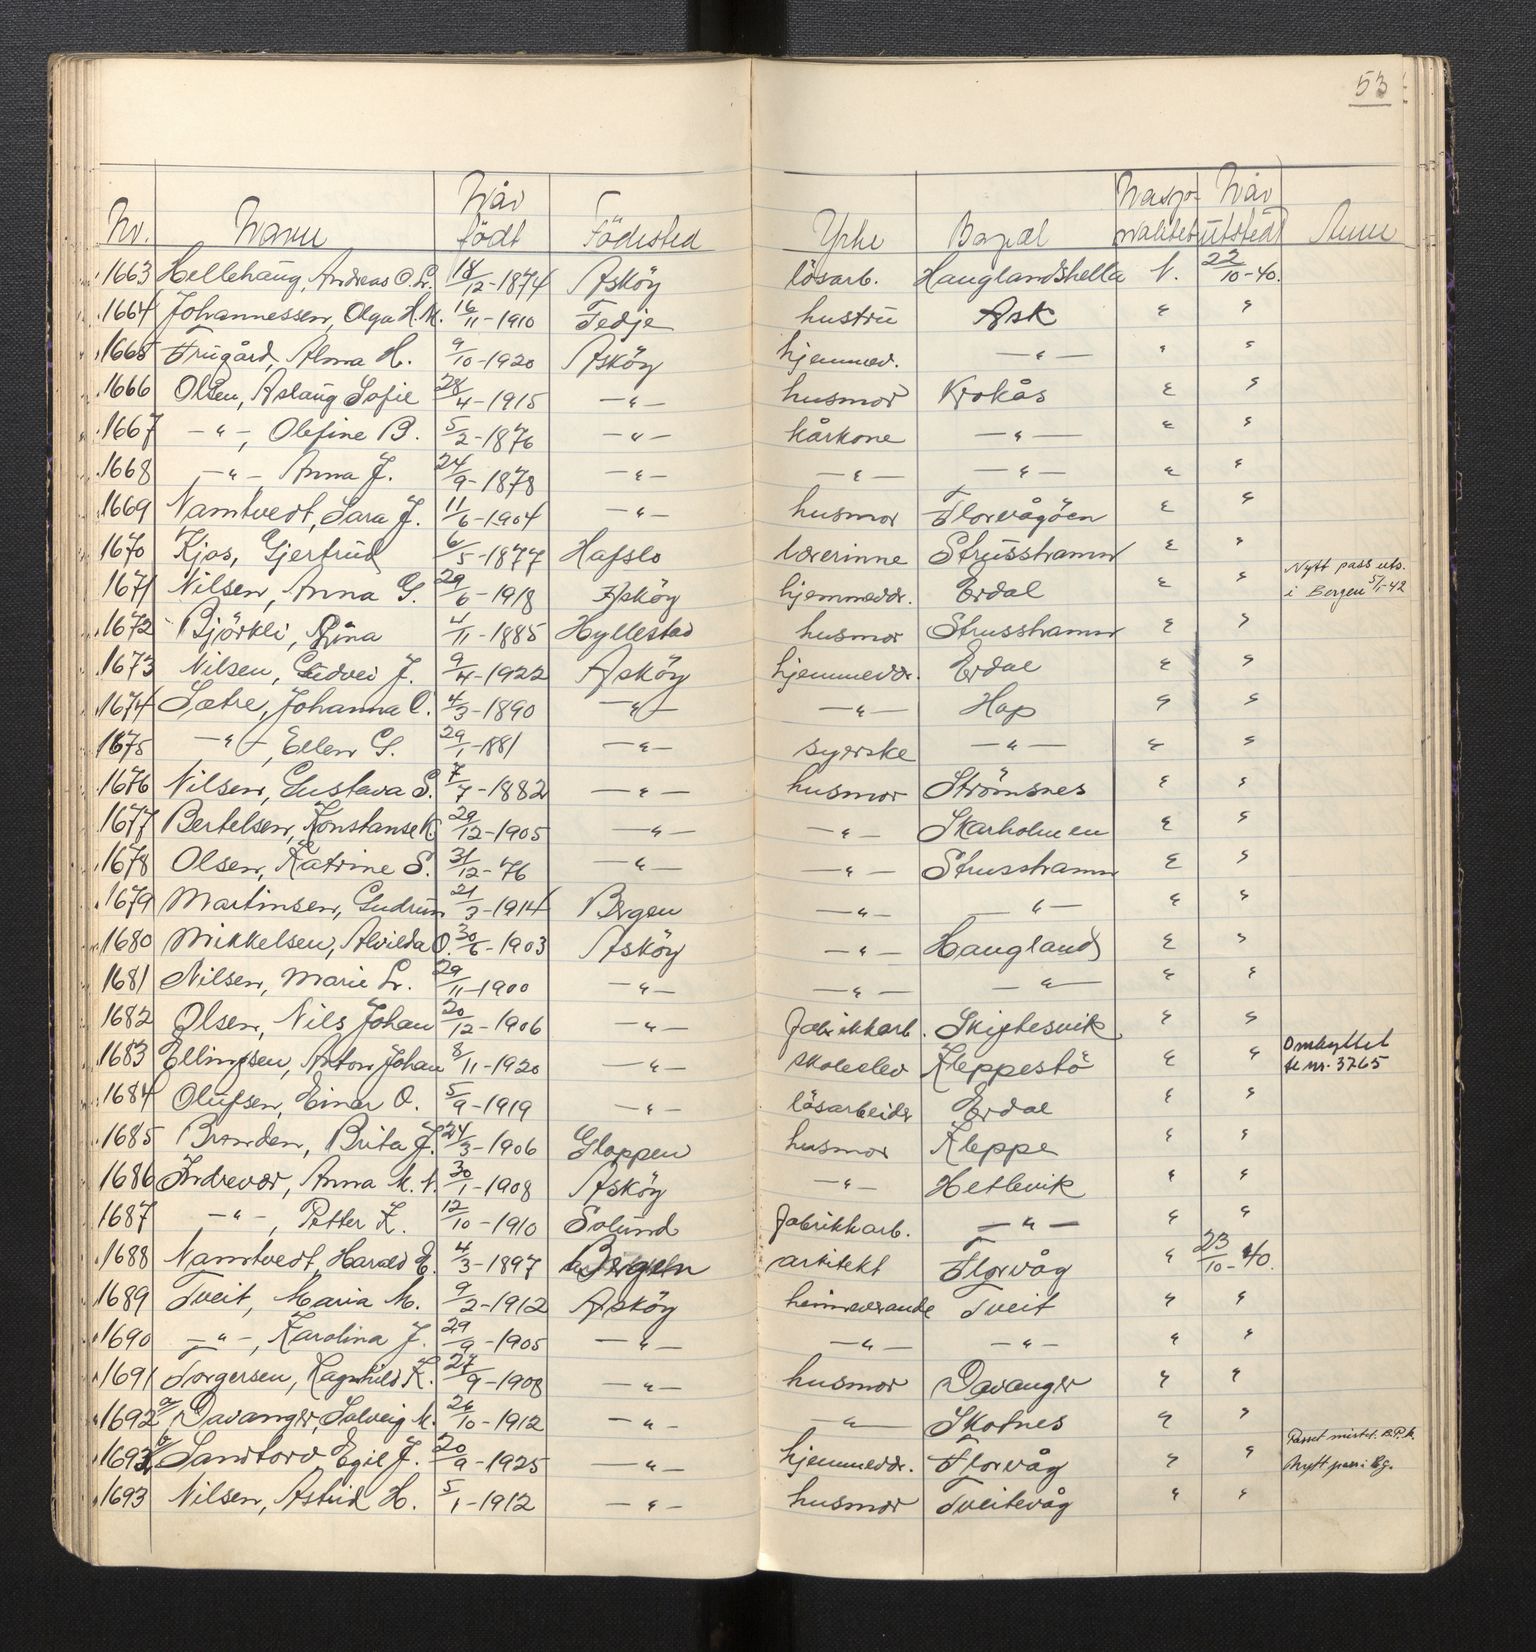 53
Nr. Navn Når født Födested Yrke Bopæl Nasjonalitet Når utstedt Anm
1663 Hellehaug, Andreas O. L. 18/12-1874 Asköy lösarb. Hauglandshella N. 22/10-40.
1664 Johannessen, Olga H. M. 16/11-1910 Fedje hustru Ask " "
1665 Frugård, Alma H. 9/10-1920 Asköy hjemmev. —"— " "
1666 Olsen, Aslaug Sofie 28/4-1915 —"— husmor Krokås " "
1667 —"—, Olefine B. 5/2-1876 —"— kårkone —"— " "
1668 —"— Anna J. 24/9-1878 —"— —"— —"— " "
1669 Namtvedt, Sara J. 11/6-1904 —"— husmor Florvågöen " "
1670 Kjos, Gjertrud 6/5-1877 Hafslo lærerinne Strusshamn " "
1671 Nilsen, Anna G. 29/6-1918 Asköy hjemmevær. Erdal " " Nytt pass uts. i Bergen 5/1-42
1672 Björkli, Rina 4/11-1885 Hyllestad husmor Strusshamn " "
1673 Nilsen, Lidvei J. 9/4-1922 Asköy hjemmevær. Erdal " "
1674 Sætre, Johanna O. 4/3-1890 —"— —"— Hop " "
1675 —"—, Ellen G. 29/1-1881 —"— syerske —"— " "
1676 Nilsen, Gustava S. 7/7-1882 —"— husmor Strömsnes " "
1677 Bertelsen, Konstanse K. 29/12-1905 —"— —"— Skarholmen " "
1678 Olsen, Katrine S. 31/12-76 —"— —"— Strusshamn " "
1679 Martinsen, Gudrun 21/3-1914 Bergen —"— —"— " "
1680 Mikkelsen, Alvilda O. 30/6-1903 Asköy —"— Haugland " "
1681 Nilsen, Marie L. 29/11-1900 —"— —"— —"— " "
1682 Olsen, Nils Johan 20/12-1906 —"— fabrikkarb. Skiftesvik " "
1683 Ellingsen, Anton Johan 8/11-1920 —"— skoleelev Kleppestö " " Ombyttet te nr. 3765
1684 Olufsen, Einar O. 5/9-1919 —"— lösarbeider Erdal " "
1685 Branden, Brita J. 24/3-1906 Gloppen husmor Kleppe " "
1686 Indrevær, Anna M. N. 30/1-1908 Asköy —"— Hetlevik " "
1687 —"—, Petter K. 12/10-1910 Solund fabrikkarb. —"— " "
1688 Namtvedt, Harald E. 4/3-1897 Bergen arkitekt Florvåg " 23/10-40.
1689 Tveit, Maria M. 9/2-1912 Asköy heimeverande Tveit " "
1690 —"—, Karolina J. 29/9-1905 —"— —"— —"— " "
1691 Torgersen, Ragnhild K. 27/9-1908 —"— husmor Davanger " "
1692 a/ Davanger, Solveig M. 26/10-1912 —"— —"— Skotnes " "
1692 b/ Sandtorv Egil J. 20/9-1925 —"— hjemmevær. Florvåg " " Passet mistet. B.P.k. Nytt pass i Bg.
1693 Nilsen, Astrid H. 5/1-1912 —"— husmor Tveitevåg " "